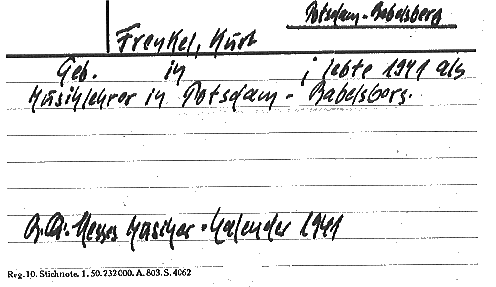 Potsdam-Babelsberg
Frenkel, Kurt
Geb. in ; lebte 1941 als
Musiklehrer in Potsdam - Babelsberg.
Musiker-Kalender 1941
Reg. 10. Stichnote. 1. 50. 232000. A. 803. S. 4062